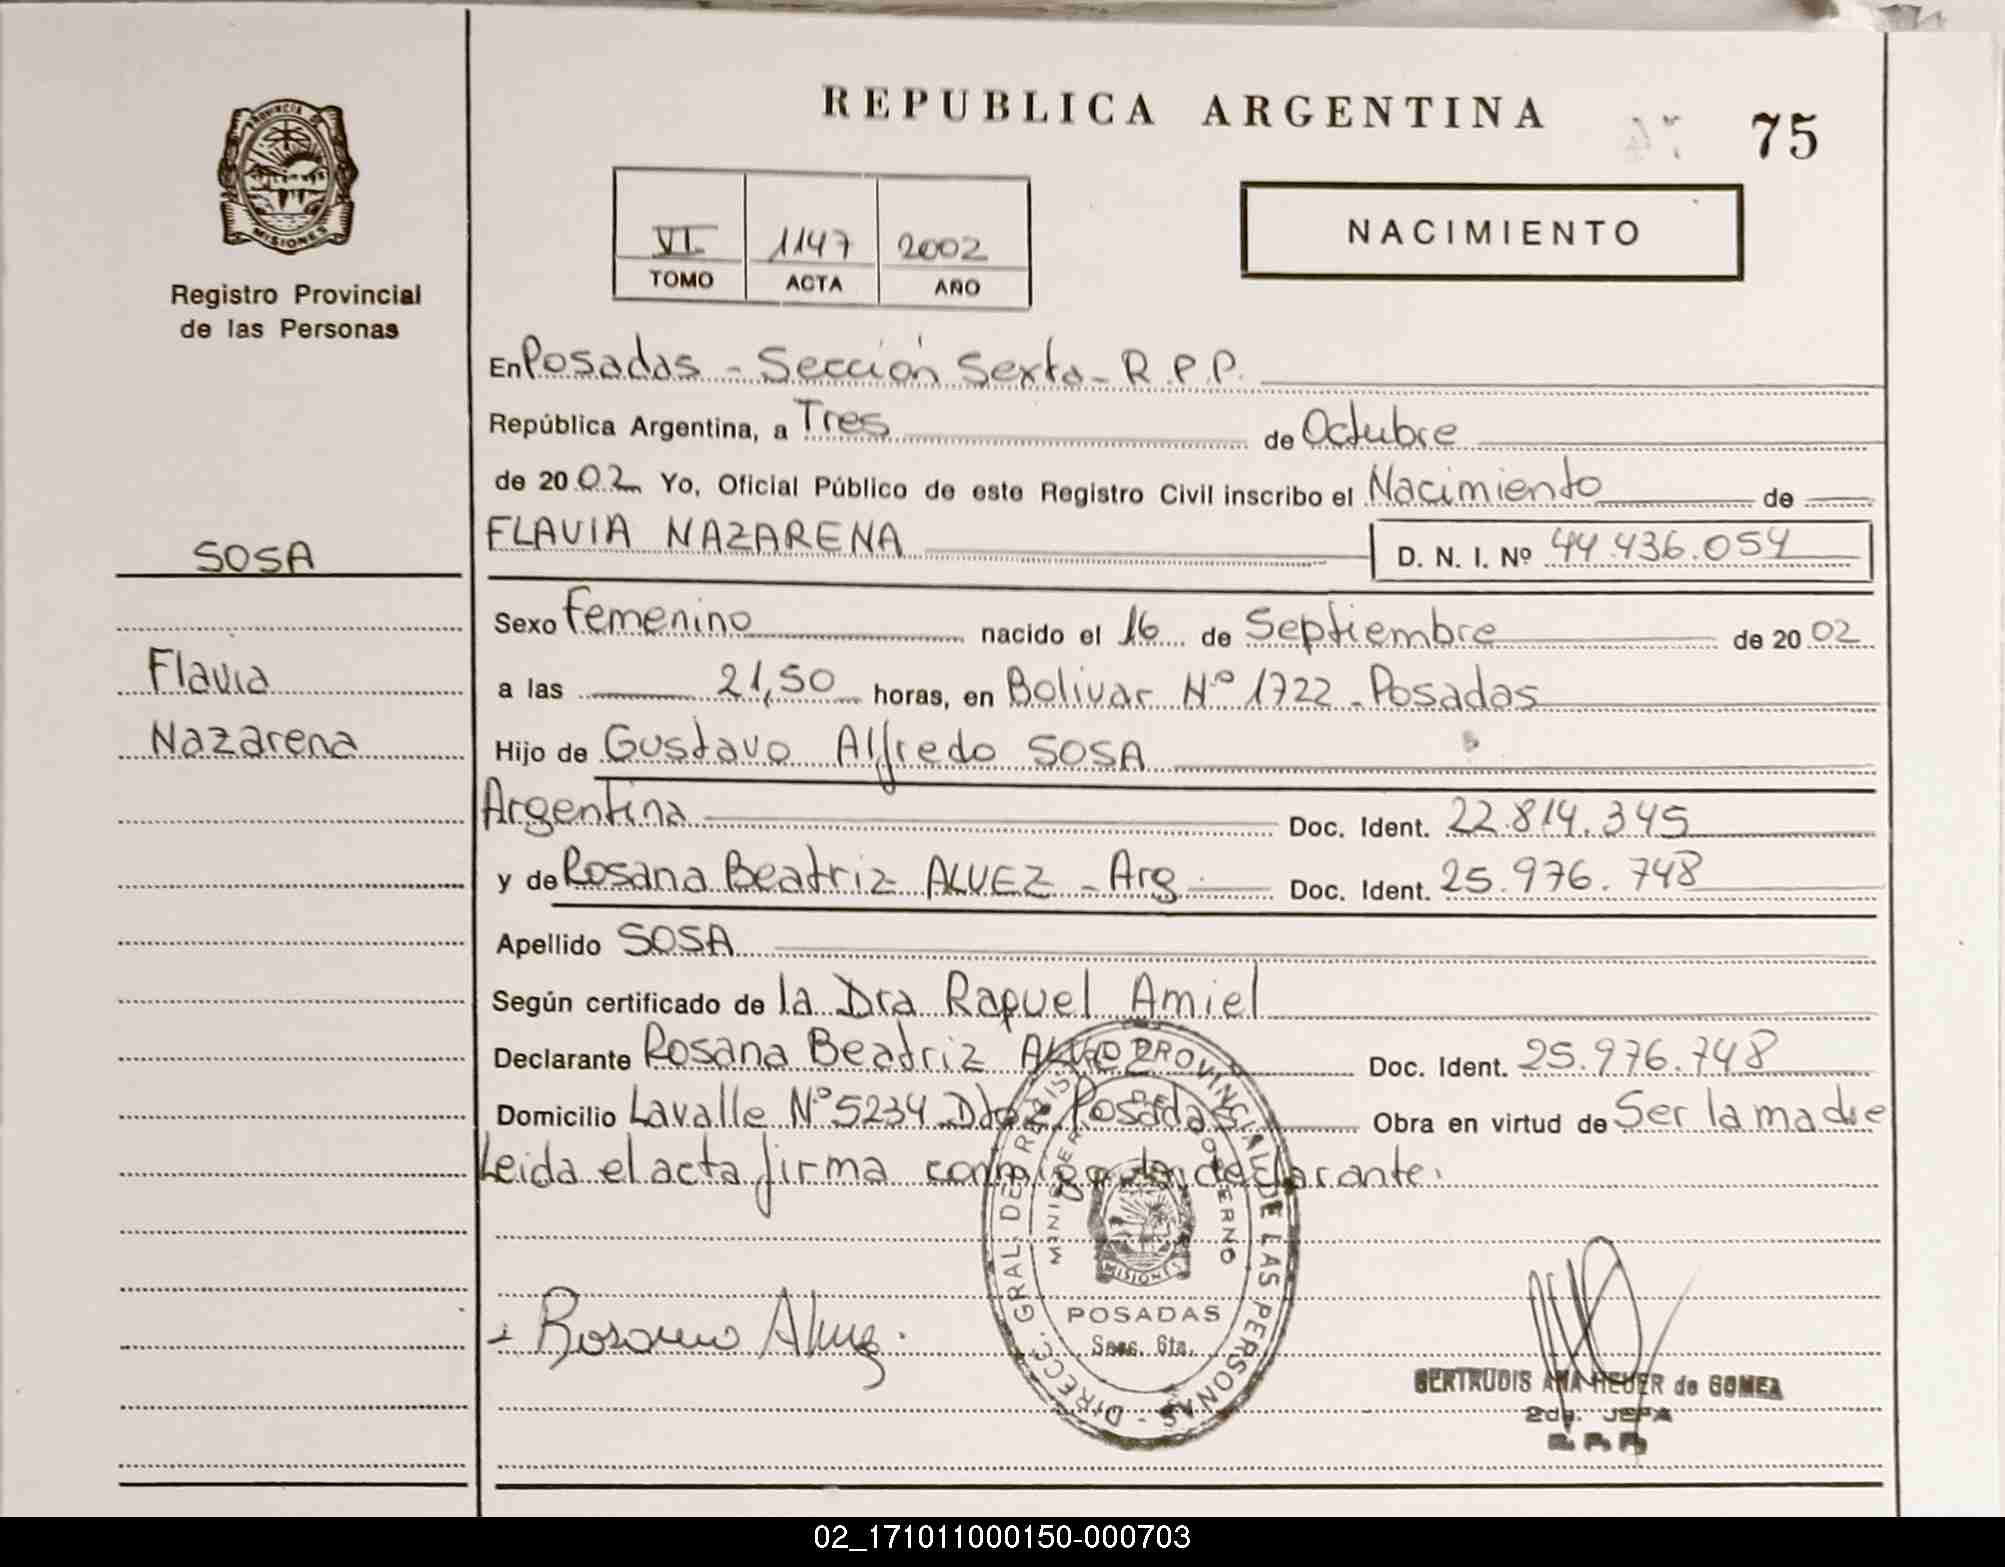 REPUBLICA ARGENTINA
75
PROVINCIA DE
MISIONES
Registro Provincial
de las Personas
VI 1147 2002
TOMO ACTA AÑO
NACIMIENTO
En Posadas - Sección Sexta - R.P.P.
República Argentina, a Tres de Octubre
de 2002 Yo, Oficial Público de este Registro Civil inscribo el Nacimiento de
FLAVIA NAZARENA D. N. I. Nº 44.436.054
SOSA
Flavia
Nazarena
Sexo Femenino nacido el 16 de Septiembre de 2002
a las 21,50 horas, en Bolivar Nº 1722 - Posadas
Hijo de Gustavo Alfredo SOSA
Argentina Doc. Ident. 22.814.345
y de Rosana Beatriz ALVEZ - Arg. Doc. Ident. 25.976.748
Apellido SOSA
Según certificado de la Dra Raquel Amiel
Declarante Rosana Beatriz ALVEZ Doc. Ident. 25.976.748
Domicilio Lavalle Nº 5234 Posadas Obra en virtud de Ser la madre
Leida el acta firma conmigo la declarante.
DIRECC. GRAL. DE REGISTRO PROVINCIAL DE LAS PERSONAS
MINISTERIO DE GOBIERNO
MISIONES
POSADAS
Secc. 6ta.
Rosana Alvez.
GERTRUDIS ANA HEUER de GOMEZ
2da. JEFA
R.P.P.
02_171011000150-000703